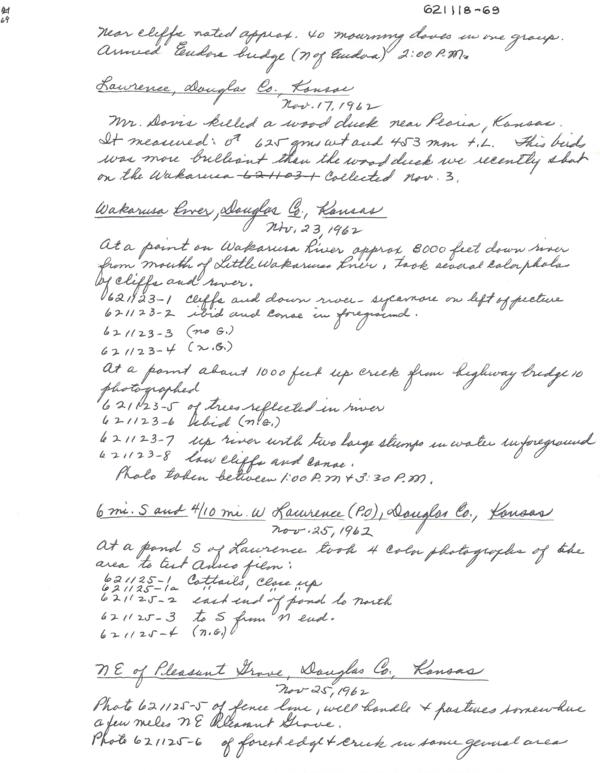 621118-69
69
Near cliffs noted approx. 40 mourning doves in one group.
Arrived Eudora bridge (N of Eudora) 2:00 P.M.
Lawrence, Douglas Co., Kansas
Nov. 17, 1962
Mr. Davis killed a wood duck near Peoria, Kansas.
It measured: ♂ 625 gms wt and 453 mm T.L. This bird
was more brilliant than the wood duck we recently shot
on the Wakarusa 621103-1 Collected Nov. 3.
Wakarusa River, Douglas Co., Kansas
Nov. 23, 1962
At a point on Wakarusa River approx 8000 feet down river
from mouth of Little Wakarusa River, took several color photos
of cliffs and river.
621123-1 cliffs and down river - sycamore on left of picture
621123-2 ibid and canoe in foreground.
621123-3 (no G.)
621123-4 (N.G.)
At a point about 1000 feet up creek from highway bridge 10
photographed
621123-5 of trees reflected in river
621123-6 ibid (N.G.)
621123-7 up river with two large stumps in water in foreground
621123-8 low cliffs and canoe.
Photo taken between 1:00 P.M + 3:30 P.M.
6 mi. S and 4/10 mi. W Lawrence (P.O), Douglas Co., Kansas
Nov. 25, 1962
At a pond S of Lawrence took 4 color photographs of the
area to test Ansco film:
621125-1 Cattails, close up
621125-1a " " "
621125-2 east end of pond to north
621125-3 to S from N end.
621125-4 (N.G.)
NE of Pleasant Grove, Douglas Co., Kansas
Nov 25, 1962
Photo 621125-5 of fence line, well handle + pastures somewhere
a few miles NE Pleasant Grove.
Photo 621125-6 of forest edge + creek in same general area